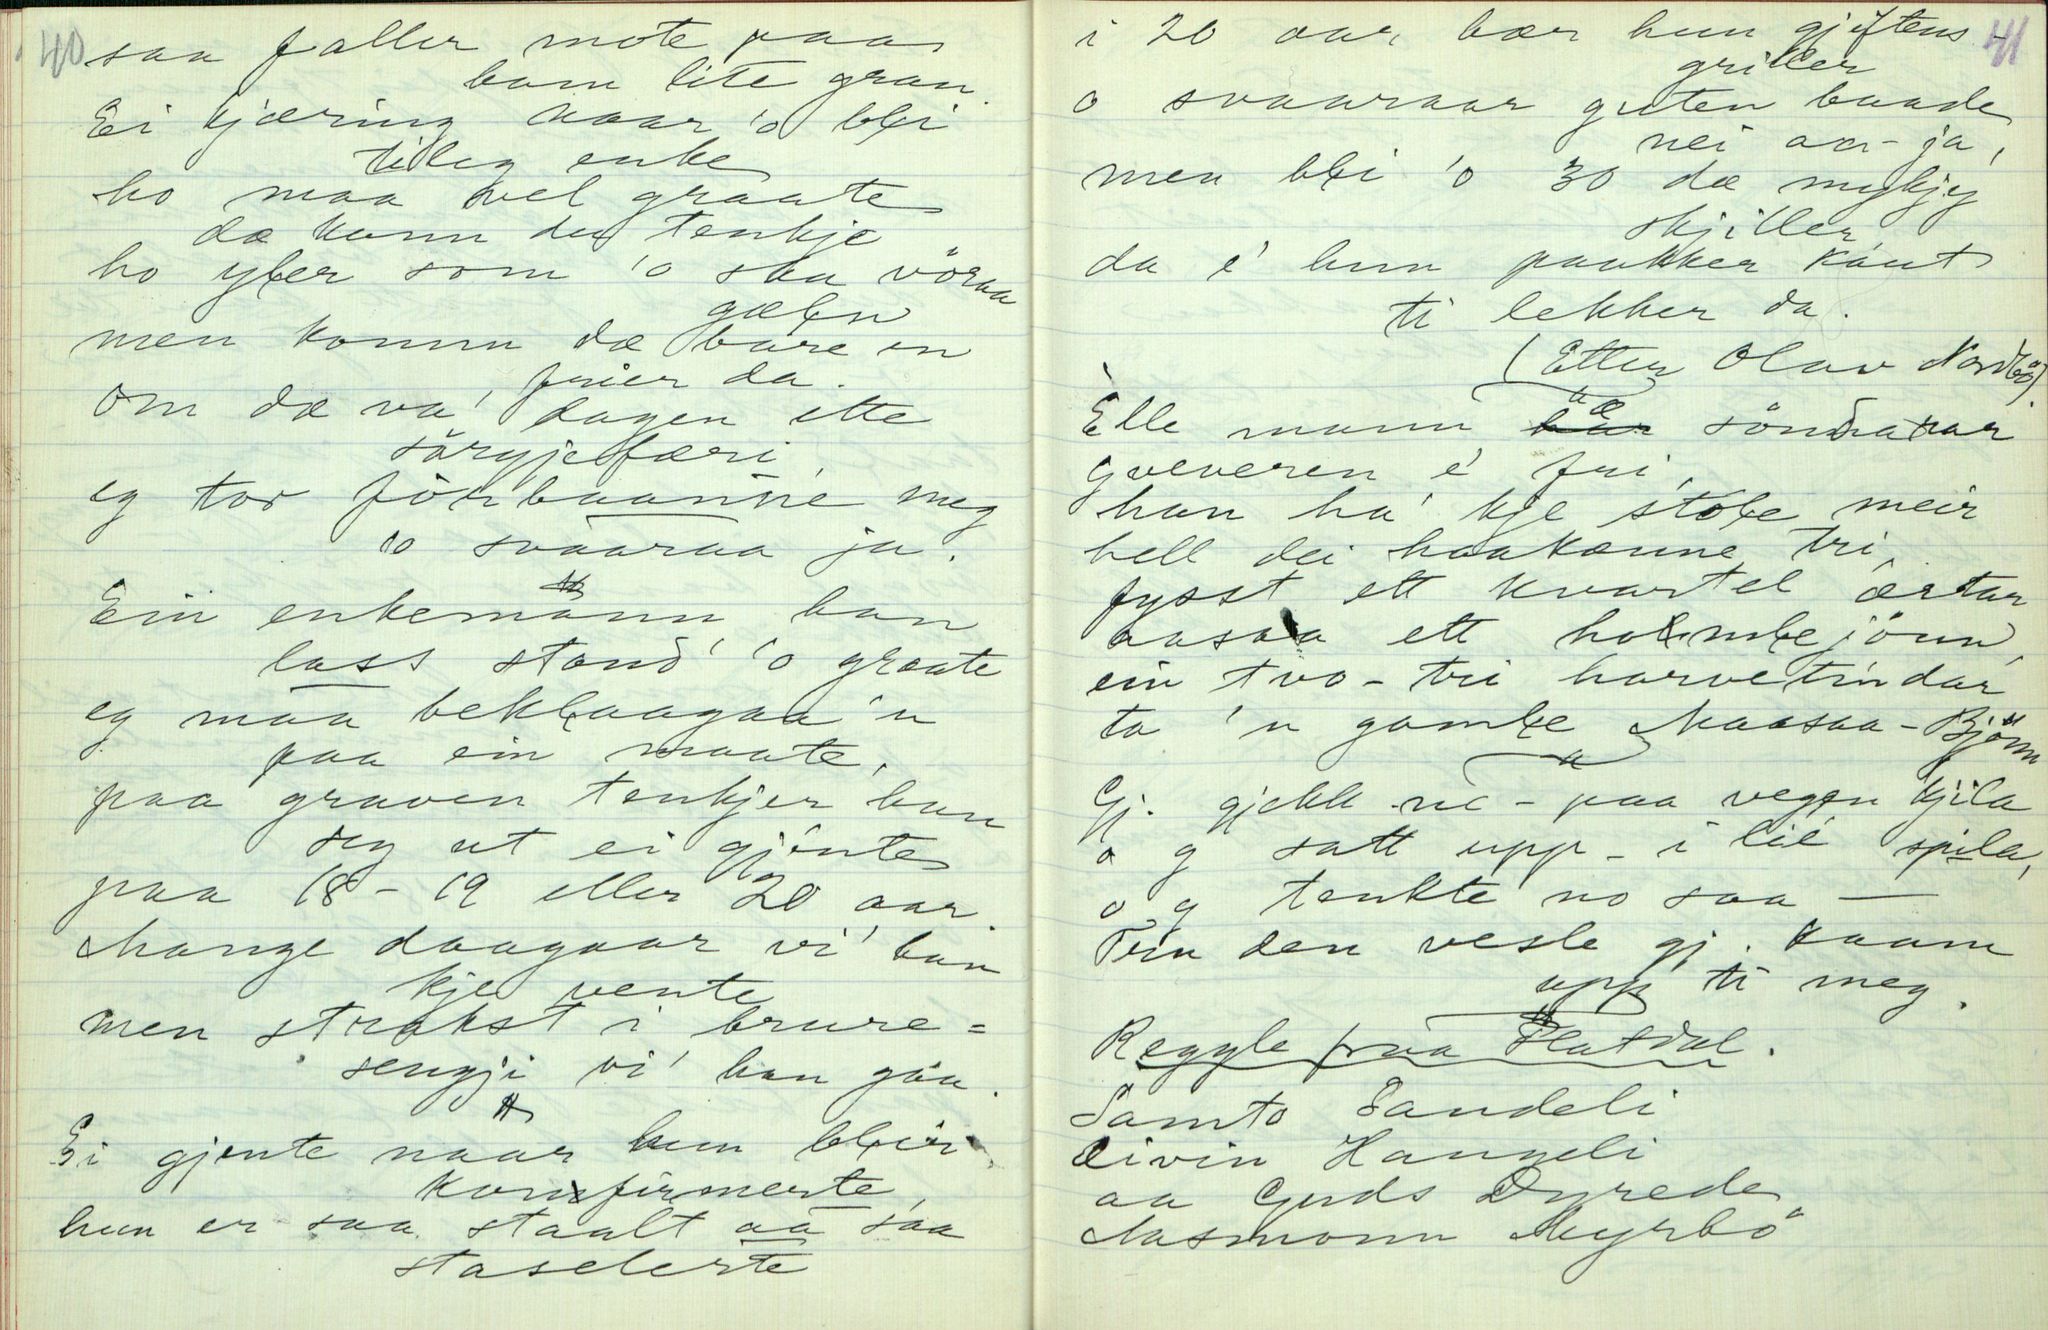 40
saa faller mote paa
ham lite gran.
Ei kjæring naar 'o błei
tileg enke
ho maa vel graate
dæ kann du tenkje
ho yłer som 'o ska vöraa
gæłn
men komm dæ bare en
frier da.
Om dæ va' dagen ette
sörgjefæri,
eg tor förbaanne meg
'o svaaraa ja.
Ein enkemann han
lass stand' 'o graate
eg maa bekłaagaa 'n
paa ein maate,
paa graven tenkjer han
seg ut ei gjente
paa 18 - 19 eller 20 aar.
Mange daagaar vi' han
kje vente
men strakst i brure=
sengji vi' han gaa.
Ei gjente naar hun błeir
konfirmerte,
hun er saa staalt aa saa
staselerte
41
i 20 aar, bær hun gjiftens-
griller
o svaaraar guten baade
nei aa - ja,
men błi 'o 30 dæ mykjy
skjiller,
da é hun paakker kaut
ti lekker da.
(Etter Olav Nordbö).
Elle mann bæ söndaaar
gveveren é fri,
han ha' kje stołe meir
hell dei haakænne tri,
fysst ett kvartel ærtar
aasaa ett hołmbejönn,
ein tvo - tri harvetindar
ta 'n gamłe Maasaa - Björn
Gj. gjekk ne - paa vegen kjila
o g satt upp - i lié spila,
o g tenkte no saa —
Fin den vesle gj. kaam
upp ti meg.
Reggle fraa Flatdal.
Samto Sandeli
Eivin Hangeli
aa Guds Dyrede
Aasmonn Myrbö